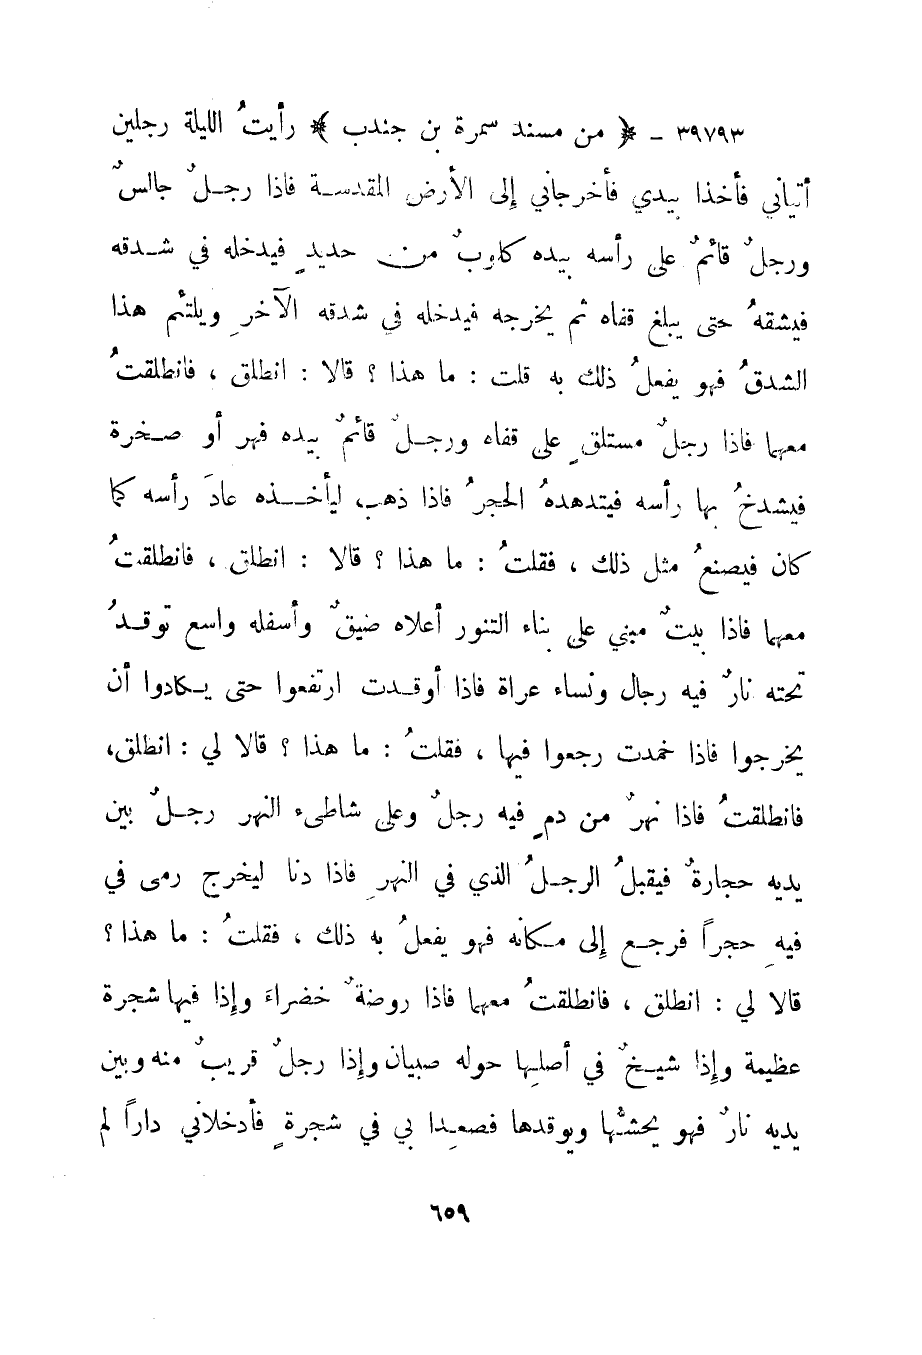 ٣٩٧٩٣ ـ ﴿ من مسند سمرة بن جندب ﴾ رأيتُ الليلة رجلين
أتياني فأخذا بيدي فأخرجاني إلى الأرض المقدسة فاذا رجلٌ جالسٌ
ورجلٌ قائمٌ على رأسه بيده كلوبٌ من حديدٍ فيدخله في شدقه
فيشقهُ حتى يبلغ قفاه ثم يخرجه فيدخله في شدقه الآخرِ ويلتئم هذا
الشدقُ فهو يفعلُ ذلك به قلت : ما هذا ؟ قالا : انطلق ، فانطلقتُ
معهما فاذا رجلٌ مستلقٍ على قفاه ورجلٌ قائمٌ بيده فهر أو صخرة
فيشدخُ بها رأسه فيتدهدهُ الحجرُ فاذا ذهب ليأخذه عادَ رأسه كما
كان فيصنعُ مثل ذلك ، فقلتُ : ما هذا ؟ قالا : انطلق ، فانطلقتُ
معهما فاذا بيتٌ مبني على بناء التنور أعلاه ضيقٌ وأسفله واسع توقدُ
تحته نارٌ فيه رجال ونساء عراة فاذا أوقدت ارتفعوا حتى يكادوا أن
يخرجوا فاذا خمدت رجعوا فيها ، فقلتُ : ما هذا ؟ قالا لي : انطلق،
فانطلقتُ فاذا نهرٌ من دمٍ فيه رجلٌ وعلى شاطىء النهر رجلٌ بين
يديه حجارةٌ فيقبلُ الرجلُ الذي في النهرِ فاذا دنا ليخرج رمى في
فيهِ حجراً فرجع إلى مكانه فهو يفعلُ به ذلك ، فقلتُ : ما هذا ؟
قالا لي : انطلق ، فانطلقتُ معهما فاذا روضةٌ خضراءَ وإذا فيها شجرة
عظيمة وإذا شيخٌ في أصلها حوله صبيان وإذا رجلٌ قريبٌ منه وبين
يديه نارٌ فهو يحشُّها ويوقدها فصعدا بي في شجرةٍ فأدخلاني داراً لم
٦٥٩